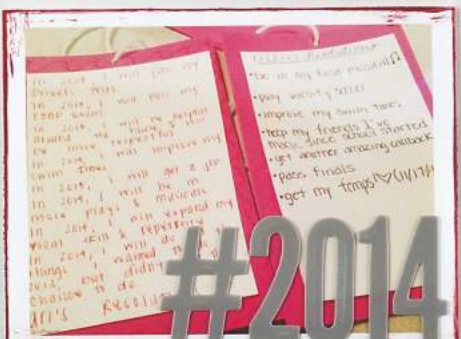 In 2014, I will pass my
Drivers Test
In 2014, I will pass my
exams
In 2014, I will be helpful
around the house & will
be more respectful
In 2014, I will improve my
swim times
In 2014, I will get a job
In 2014, I will be in
more plays & musicals
In 2014, I will expand my
vocal skill & repertoire
In 2014, I will do
things I wanted to do in
but didn't
chance to do
Resolutions
•be in my first musical!
•play varsity soccer
•improve my swim times
•keep my friends I've
made since school started
•get another amazing callback
•pass finals
•get my temps!♡
#2014